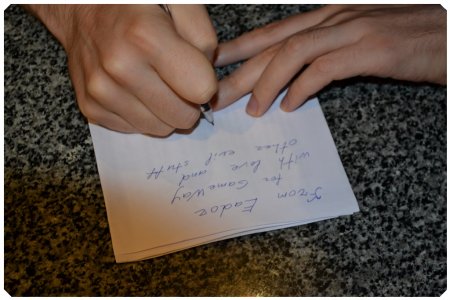 From Eador
for GameWay
with love and
other evil stuff